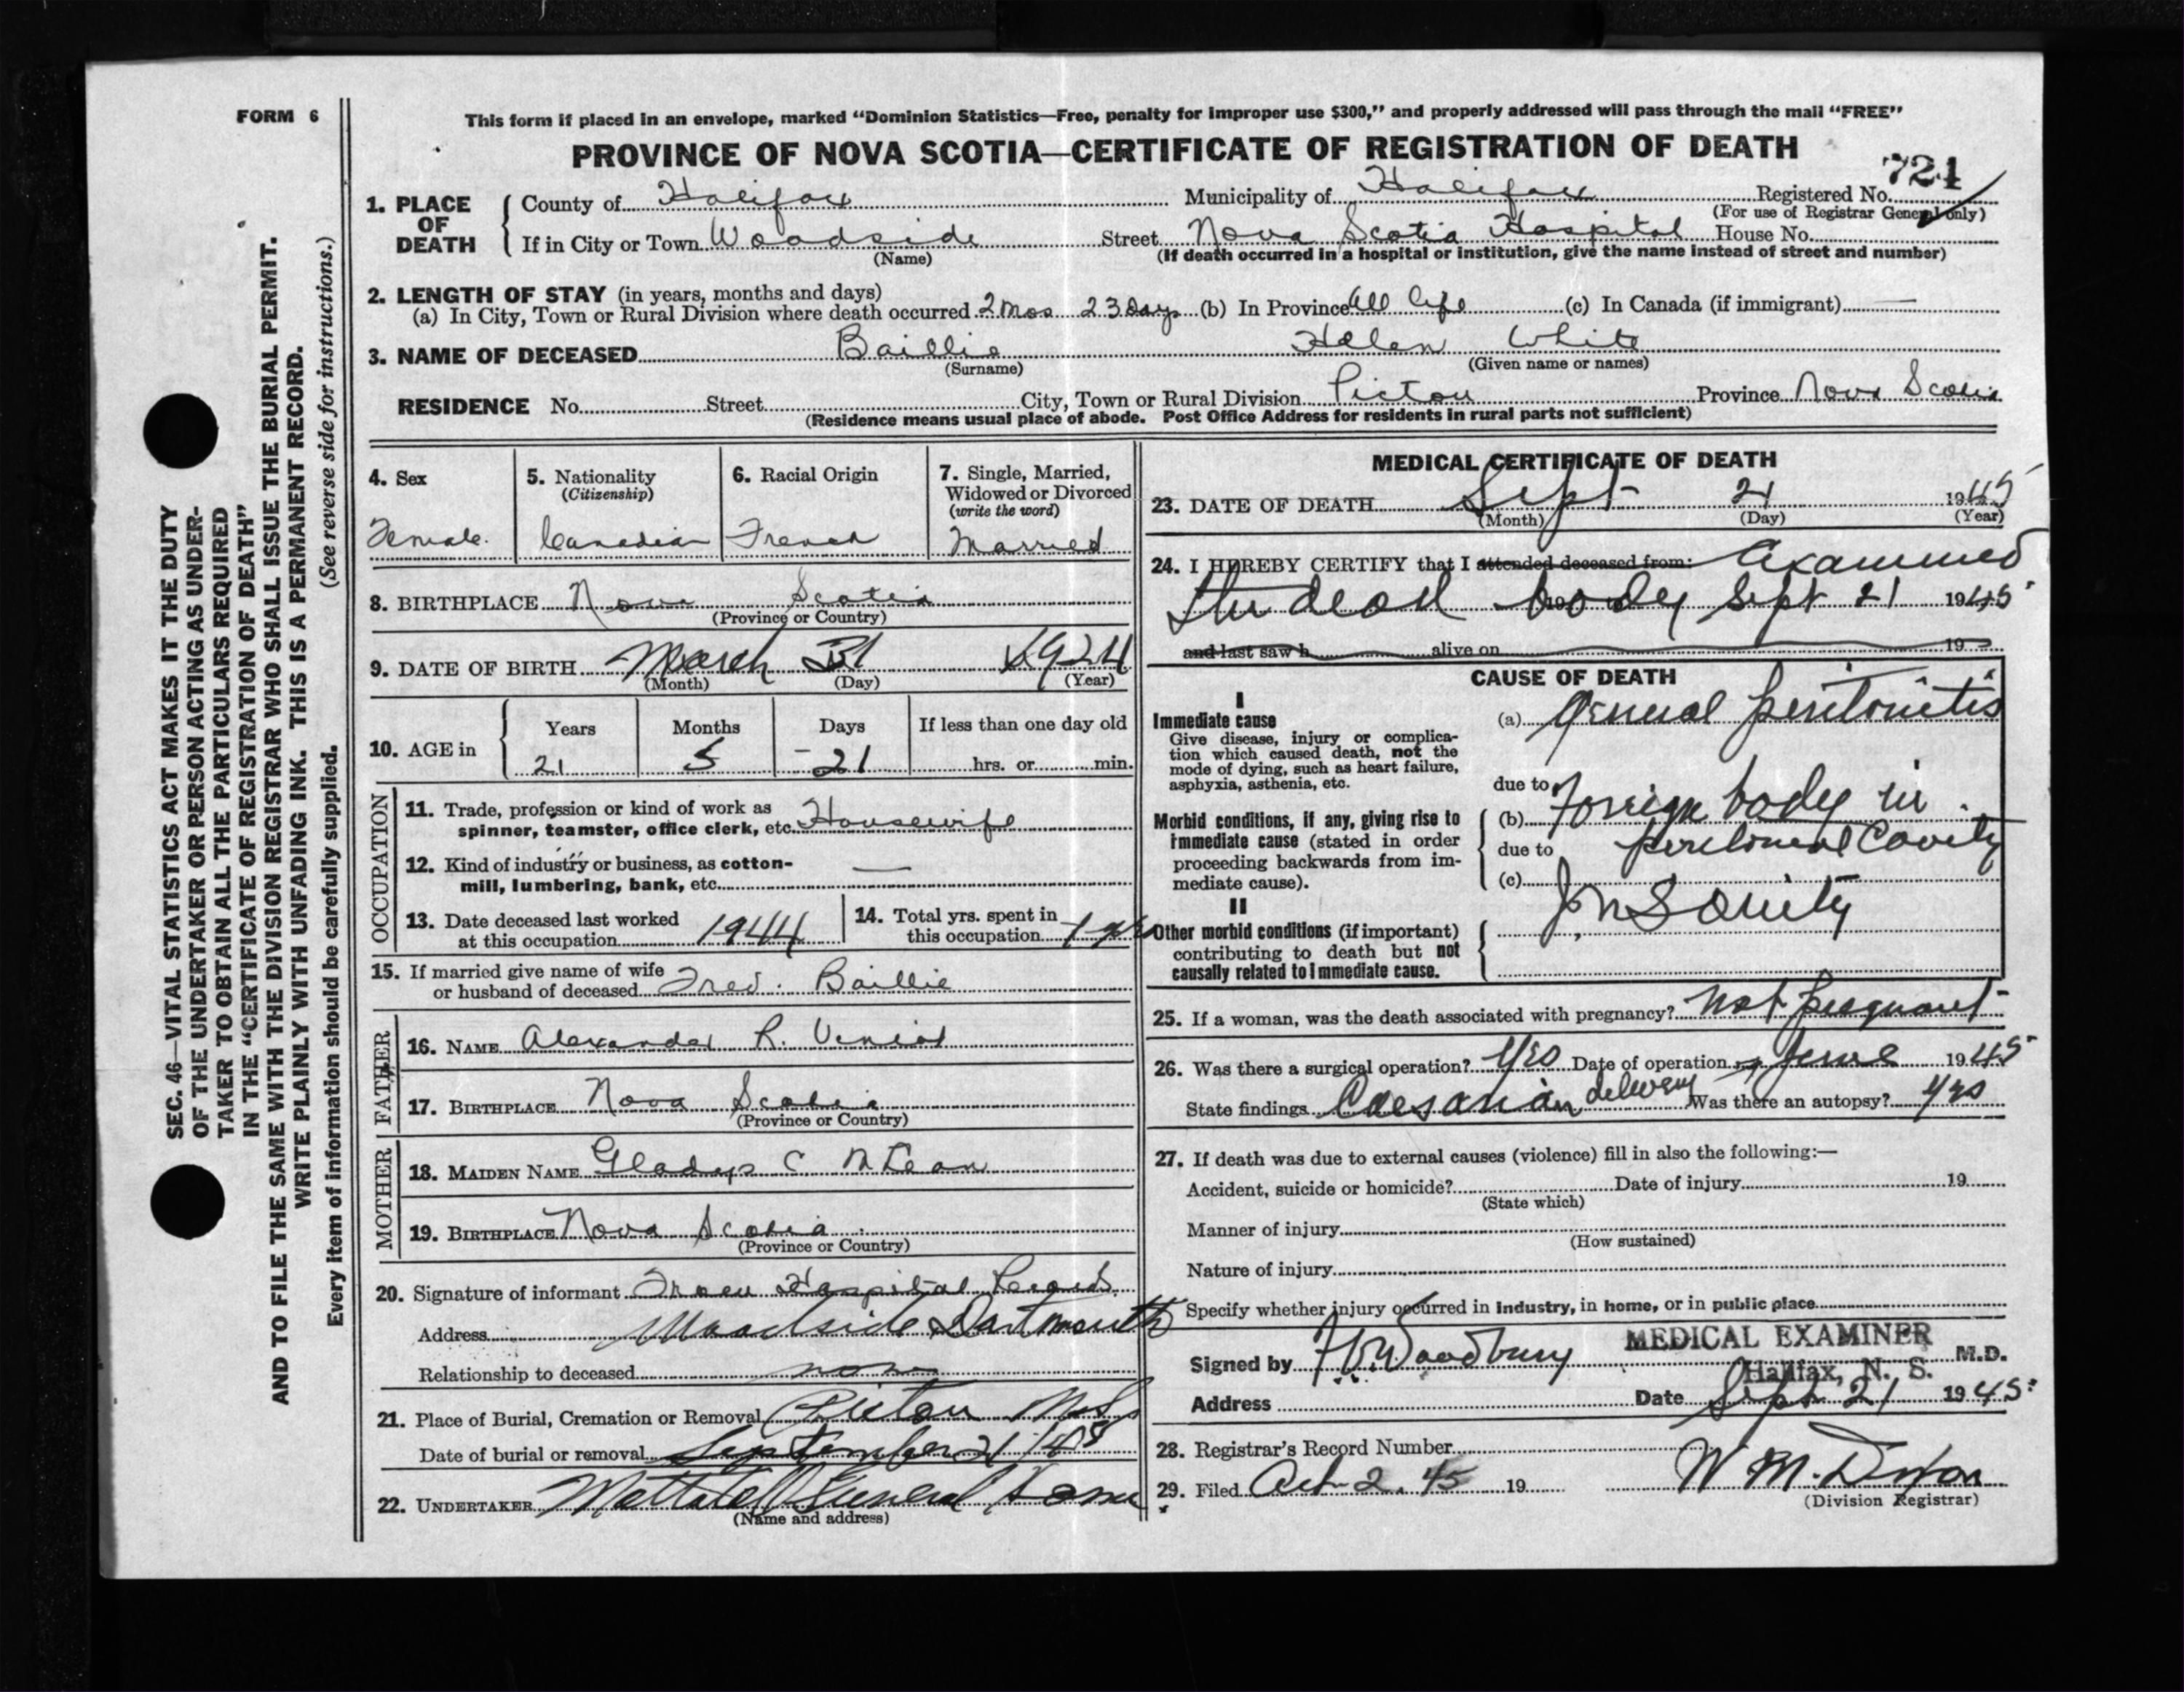 FORM 6
This form if placed in an envelope, marked "Dominion Statistics—Free, penalty for improper use $300," and properly addressed will pass through the mail "FREE"
PROVINCE OF NOVA SCOTIA—CERTIFICATE OF REGISTRATION OF DEATH
724
1. PLACE OF DEATH County of Halifax Municipality of Halifax Registered No.
(For use of Registrar General only)
If in City or Town Woodside Street Nova Scotia Hospital House No.
(Name) (If death occurred in a hospital or institution, give the name instead of street and number)
2. LENGTH OF STAY (in years, months and days)
(a) In City, Town or Rural Division where death occurred 2 mos 23 days (b) In Province All life (c) In Canada (if immigrant) —
3. NAME OF DECEASED Baillie Helen White
(Surname) (Given name or names)
RESIDENCE No. Street City, Town or Rural Division Pictou Province Nova Scotia
(Residence means usual place of abode. Post Office Address for residents in rural parts not sufficient)
4. Sex
Female
5. Nationality
(Citizenship)
Canadian
6. Racial Origin
French
7. Single, Married,
Widowed or Divorced
(write the word)
Married
8. BIRTHPLACE Nova Scotia
(Province or Country)
9. DATE OF BIRTH March 31 1924
(Month) (Day) (Year)
10. AGE in
Years Months Days If less than one day old
21 5 21 hrs. or min.
OCCUPATION
11. Trade, profession or kind of work as
spinner, teamster, office clerk, etc. Housewife
12. Kind of industry or business, as cotton-
mill, lumbering, bank, etc. —
13. Date deceased last worked
at this occupation 1944
14. Total yrs. spent in
this occupation 1 yr
15. If married give name of wife
or husband of deceased Fred. Baillie
FATHER
16. NAME Alexander R. Veniot
17. BIRTHPLACE Nova Scotia
(Province or Country)
MOTHER
18. MAIDEN NAME Gladys C McLean
19. BIRTHPLACE Nova Scotia
(Province or Country)
20. Signature of informant From Hospital Records
Address Woodside Dartmouth
Relationship to deceased none
21. Place of Burial, Cremation or Removal Pictou N.S.
Date of burial or removal September 21/45
22. UNDERTAKER Funeral Home
(Name and address)
MEDICAL CERTIFICATE OF DEATH
23. DATE OF DEATH Sept 21 1945
(Month) (Day) (Year)
24. I HEREBY CERTIFY that I attended deceased from: Examined
the dead body Sept 21 1945
and last saw h alive on 19
CAUSE OF DEATH
I
Immediate cause
Give disease, injury or complica-
tion which caused death, not the
mode of dying, such as heart failure,
asphyxia, asthenia, etc.
(a) General peritonitis
due to
Morbid conditions, if any, giving rise to
immediate cause (stated in order
proceeding backwards from im-
mediate cause).
(b) Foreign body in
due to peritoneal Cavity
(c)
II
Other morbid conditions (if important)
contributing to death but not
causally related to immediate cause.
Insanity
25. If a woman, was the death associated with pregnancy? Not pregnant
26. Was there a surgical operation? Yes Date of operation June 1945
State findings Caesarian delivery Was there an autopsy? Yes
27. If death was due to external causes (violence) fill in also the following:—
Accident, suicide or homicide? Date of injury 19
(State which)
Manner of injury
(How sustained)
Nature of injury
Specify whether injury occurred in industry, in home, or in public place
MEDICAL EXAMINER
Signed by Woodbury M.D.
Halifax, N. S.
Address Date Sept 21 1945
28. Registrar's Record Number
29. Filed Oct 2, 45 19 W. M. Dixon
(Division Registrar)
SEC. 46—VITAL STATISTICS ACT MAKES IT THE DUTY
OF THE UNDERTAKER OR PERSON ACTING AS UNDER-
TAKER TO OBTAIN ALL THE PARTICULARS REQUIRED
IN THE "CERTIFICATE OF REGISTRATION OF DEATH"
AND TO FILE THE SAME WITH THE DIVISION REGISTRAR WHO SHALL ISSUE THE BURIAL PERMIT.
WRITE PLAINLY WITH UNFADING INK. THIS IS A PERMANENT RECORD.
Every item of information should be carefully supplied. (See reverse side for instructions.)